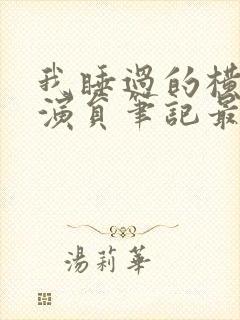 我睡過的橫
演員筆記最
湯莉華